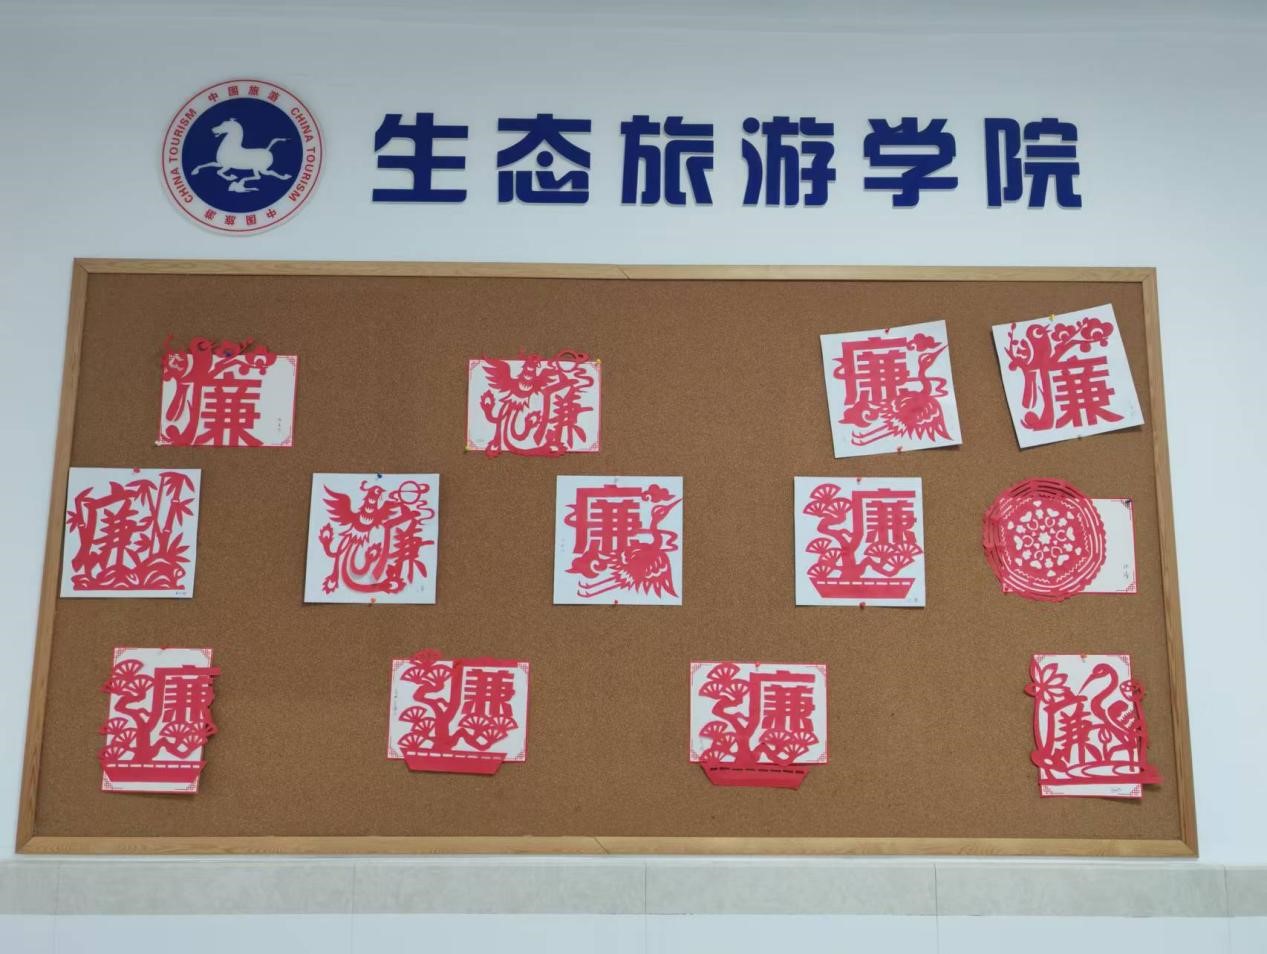 中国旅游 CHINA TOURISM 中国旅游 CHINA TOURISM
生态旅游学院
廉
廉
廉
廉
廉
廉
廉
廉
廉
廉
廉
廉